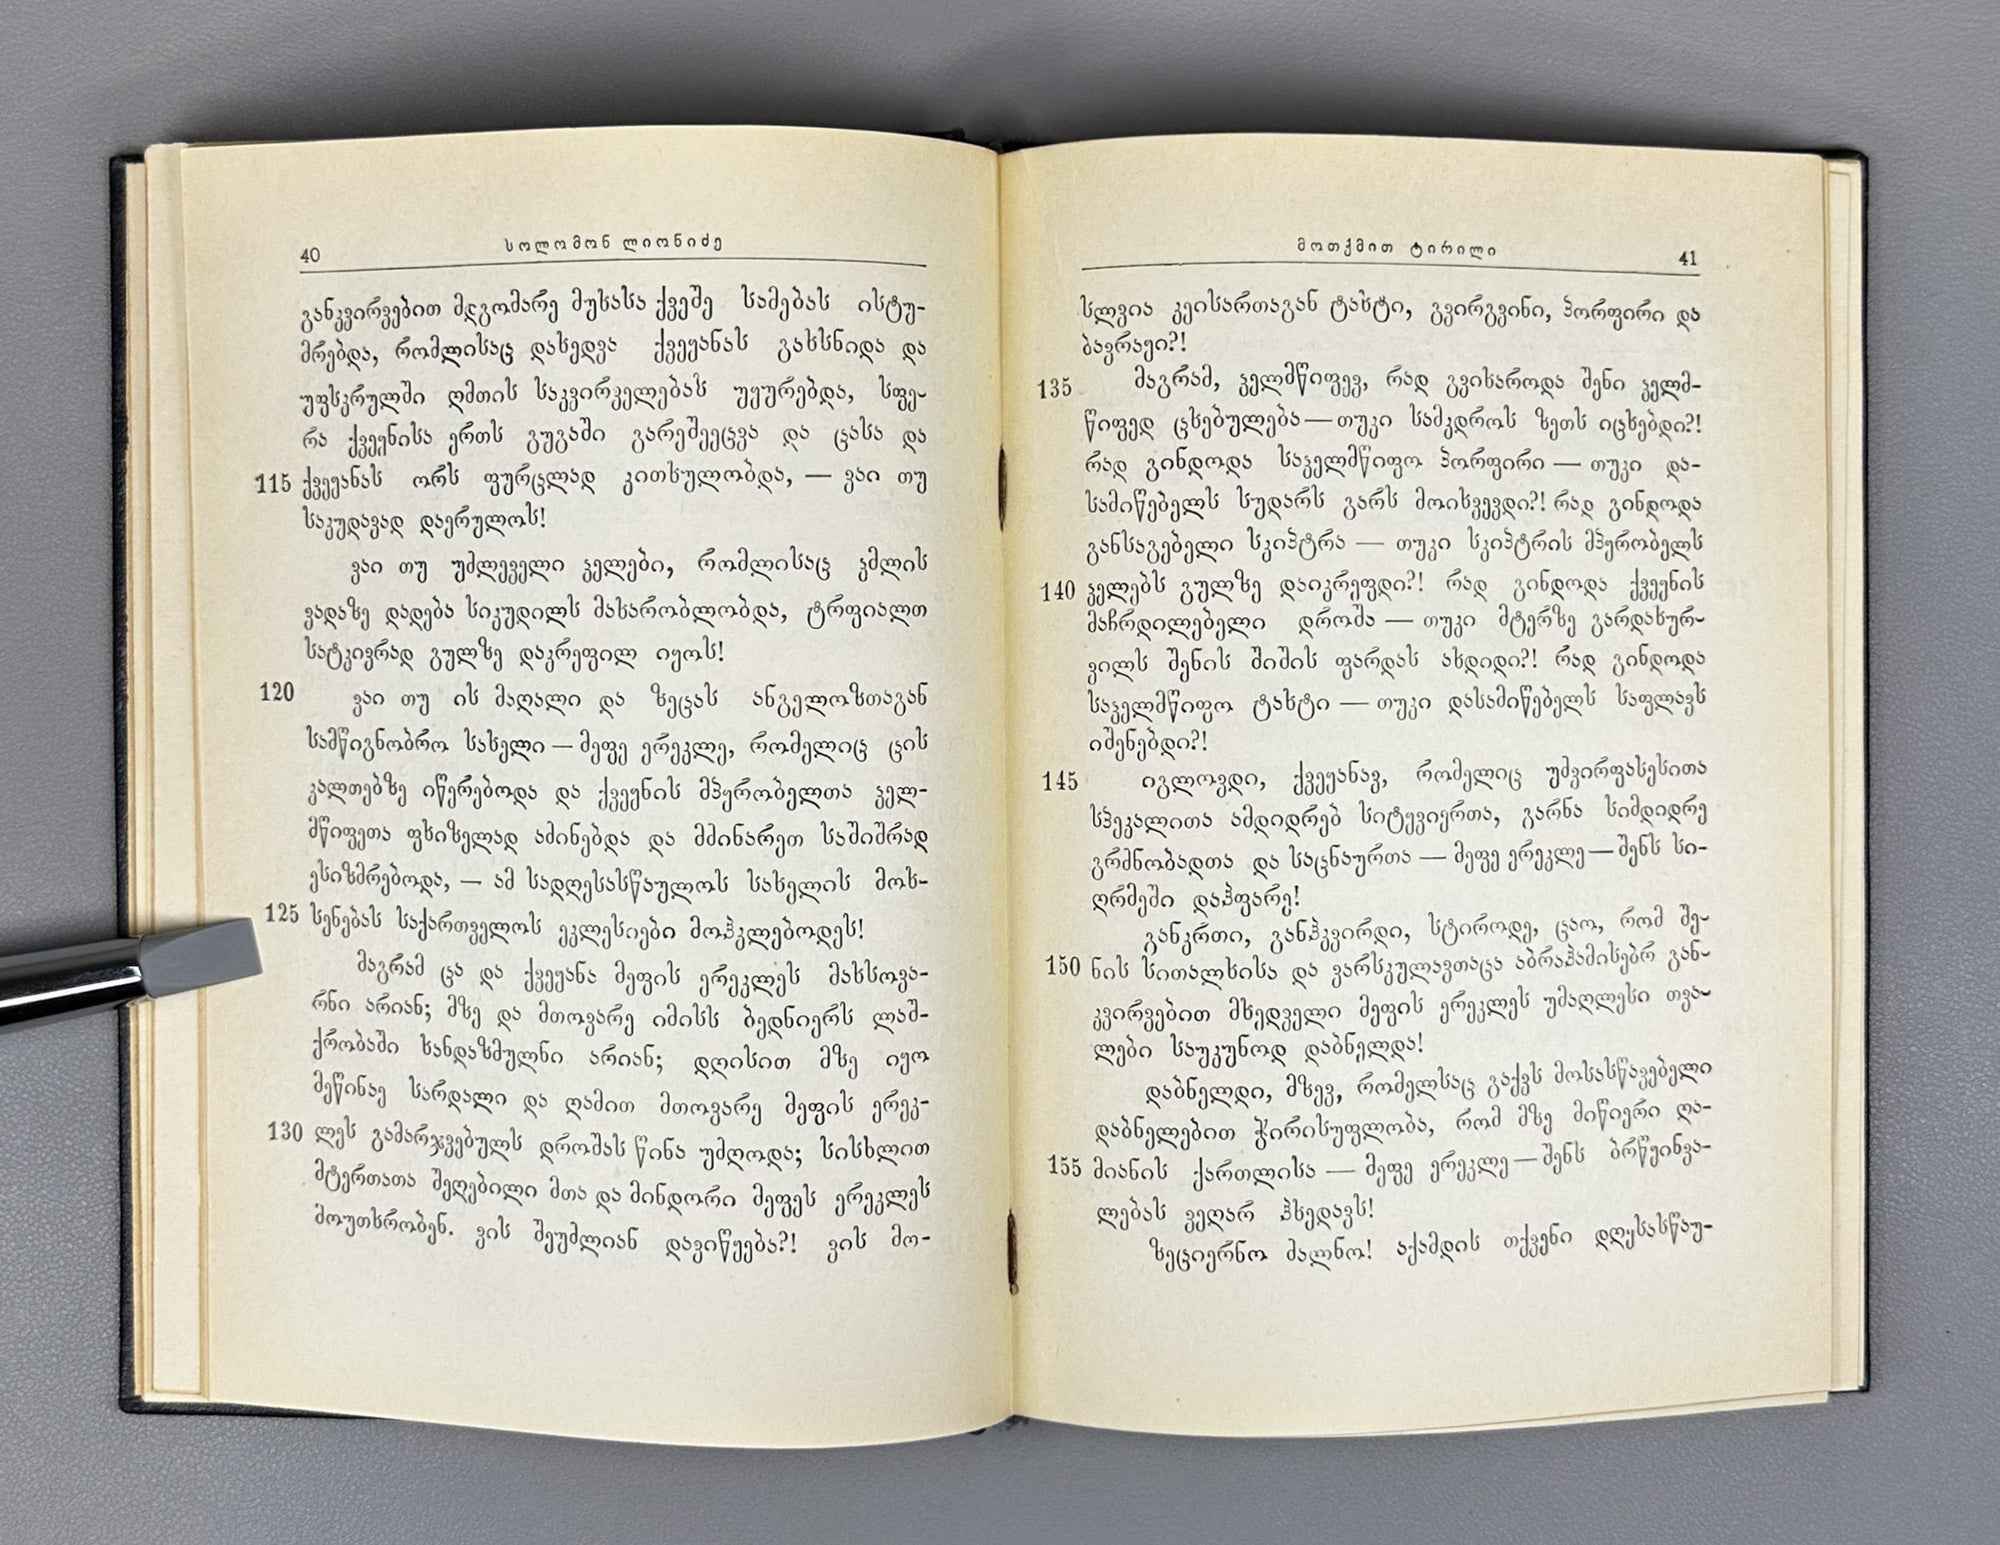 40
სოლომონ ლიონიძე
განკვირვებით მდგომარე მუხასა ქვეშე სამებას ისტუ-
მრებდა, რომლისაც დახედვა ქვეყანას გახსნიდა და
უფსკრულში ღმთის საკვირველებას უყურებდა, სფე-
რა ქვეყნისა ერთს გუგაში გარეშეეცვა და ცასა და
115 ქვეყანას ორს ფურცლად კითხულობდა, — ვაი თუ
საკუდავად დაერულოს!
ვაი თუ უძლეველი ჴელები, რომლისაც ჴმლის
ვადაზე დადება სიკუდილს მახარობლობდა, ტრფიალთ
სატკივრად გულზე დაკრეფილ იყოს!
120 ვაი თუ ის მაღალი და ზეცას ანგელოზთაგან
სამწიგნობრო სახელი — მეფე ერეკლე, რომელიც ცის
კალთებზე იწერებოდა და ქვეყნის მპყრობელთა ჴელ-
მწიფეთა ფხიზელად აშინებდა და მძინარეთ საშიშრად
ესიზმრებოდა, — ამ სადღესასწაულოს სახელის მოხ-
125 სენებას საქართველოს ეკლესიები მოჰკლებოდეს!
მაგრამ ცა და ქვეყანა მეფის ერეკლეს მახსოვა-
რნი არიან; მზე და მთოვარე იმისს ბედნიერს ლაშ-
ქრობაში ხანდაზმულნი არიან; დღისით მზე იყო
მეწინავე სარდალი და ღამით მთოვარე მეფის ერეკ-
130 ლეს გამარჯვებულს დროშას წინა უძღოდა; სისხლით
მტერთათა შეღებილი მთა და მინდორი მეფეს ერეკლეს
მოუთხრობენ. ვის შეუძლიან დავიწყება?! ვის მო-
მოთქმით ტირილი
41
სლვია კეისართაგან ტახტი, გვირგვინი, პორფირი და
ბავრაყი?!
135 მაგრამ, ჴელმწიფევ, რად გვიხაროდა შენი ჴელმ-
წიფედ ცხებულება — თუკი სამკდროს ზეთს იცხებდი?!
რად გინდოდა საჴელმწიფო პორფირი — თუკი და-
სამიწებელს სუდარს გარს მოიხვევდი?! რად გინდოდა
განსაგებელი სკიპტრა — თუკი სკიპტრის მპყრობელს
140 ჴელებს გულზე დაიკრეფდი?! რად გინდოდა ქვეყნის
მაჩრდილებელი დროშა — თუკი მტერზე გარდახურ-
ვილს შენის შიშის ფარდას ახდიდი?! რად გინდოდა
საჴელმწიფო ტახტი — თუკი დასამიწებელს საფლავს
იშენებდი?!
145 იგლოვდი, ქვეყანავ, რომელიც უძვირფასესითა
სპეკალითა ამდიდრებ სიტყვიერთა, გარნა სიმდიდრე
გრძნობადთა და საცნაურთა — მეფე ერეკლე — შენს სი-
ღრმეში დაჰფარე!
განკრთი, განჰკვირდი, სტიროდე, ცაო, რომ შე-
150 ნის სითალხისა და ვარსკულავთაცა აბრაჰამისებრ გან-
კვირვებით მხედველი მეფის ერეკლეს უმაღლესი თვა-
ლები საუკუნოდ დაბნელდა!
დაბნელდი, მზევ, რომელსაც გაქვს მოსასწავებელი
დაბნელებით ჭირისუფლობა, რომ მზე მიწიერი ღა-
155 მიანის ქართლისა — მეფე ერეკლე — შენს ბრწყინვა-
ლებას ვეღარ ჰხედავს!
ზეციერნო ძალნო! აქამდის თქვენი დღესასწაუ-